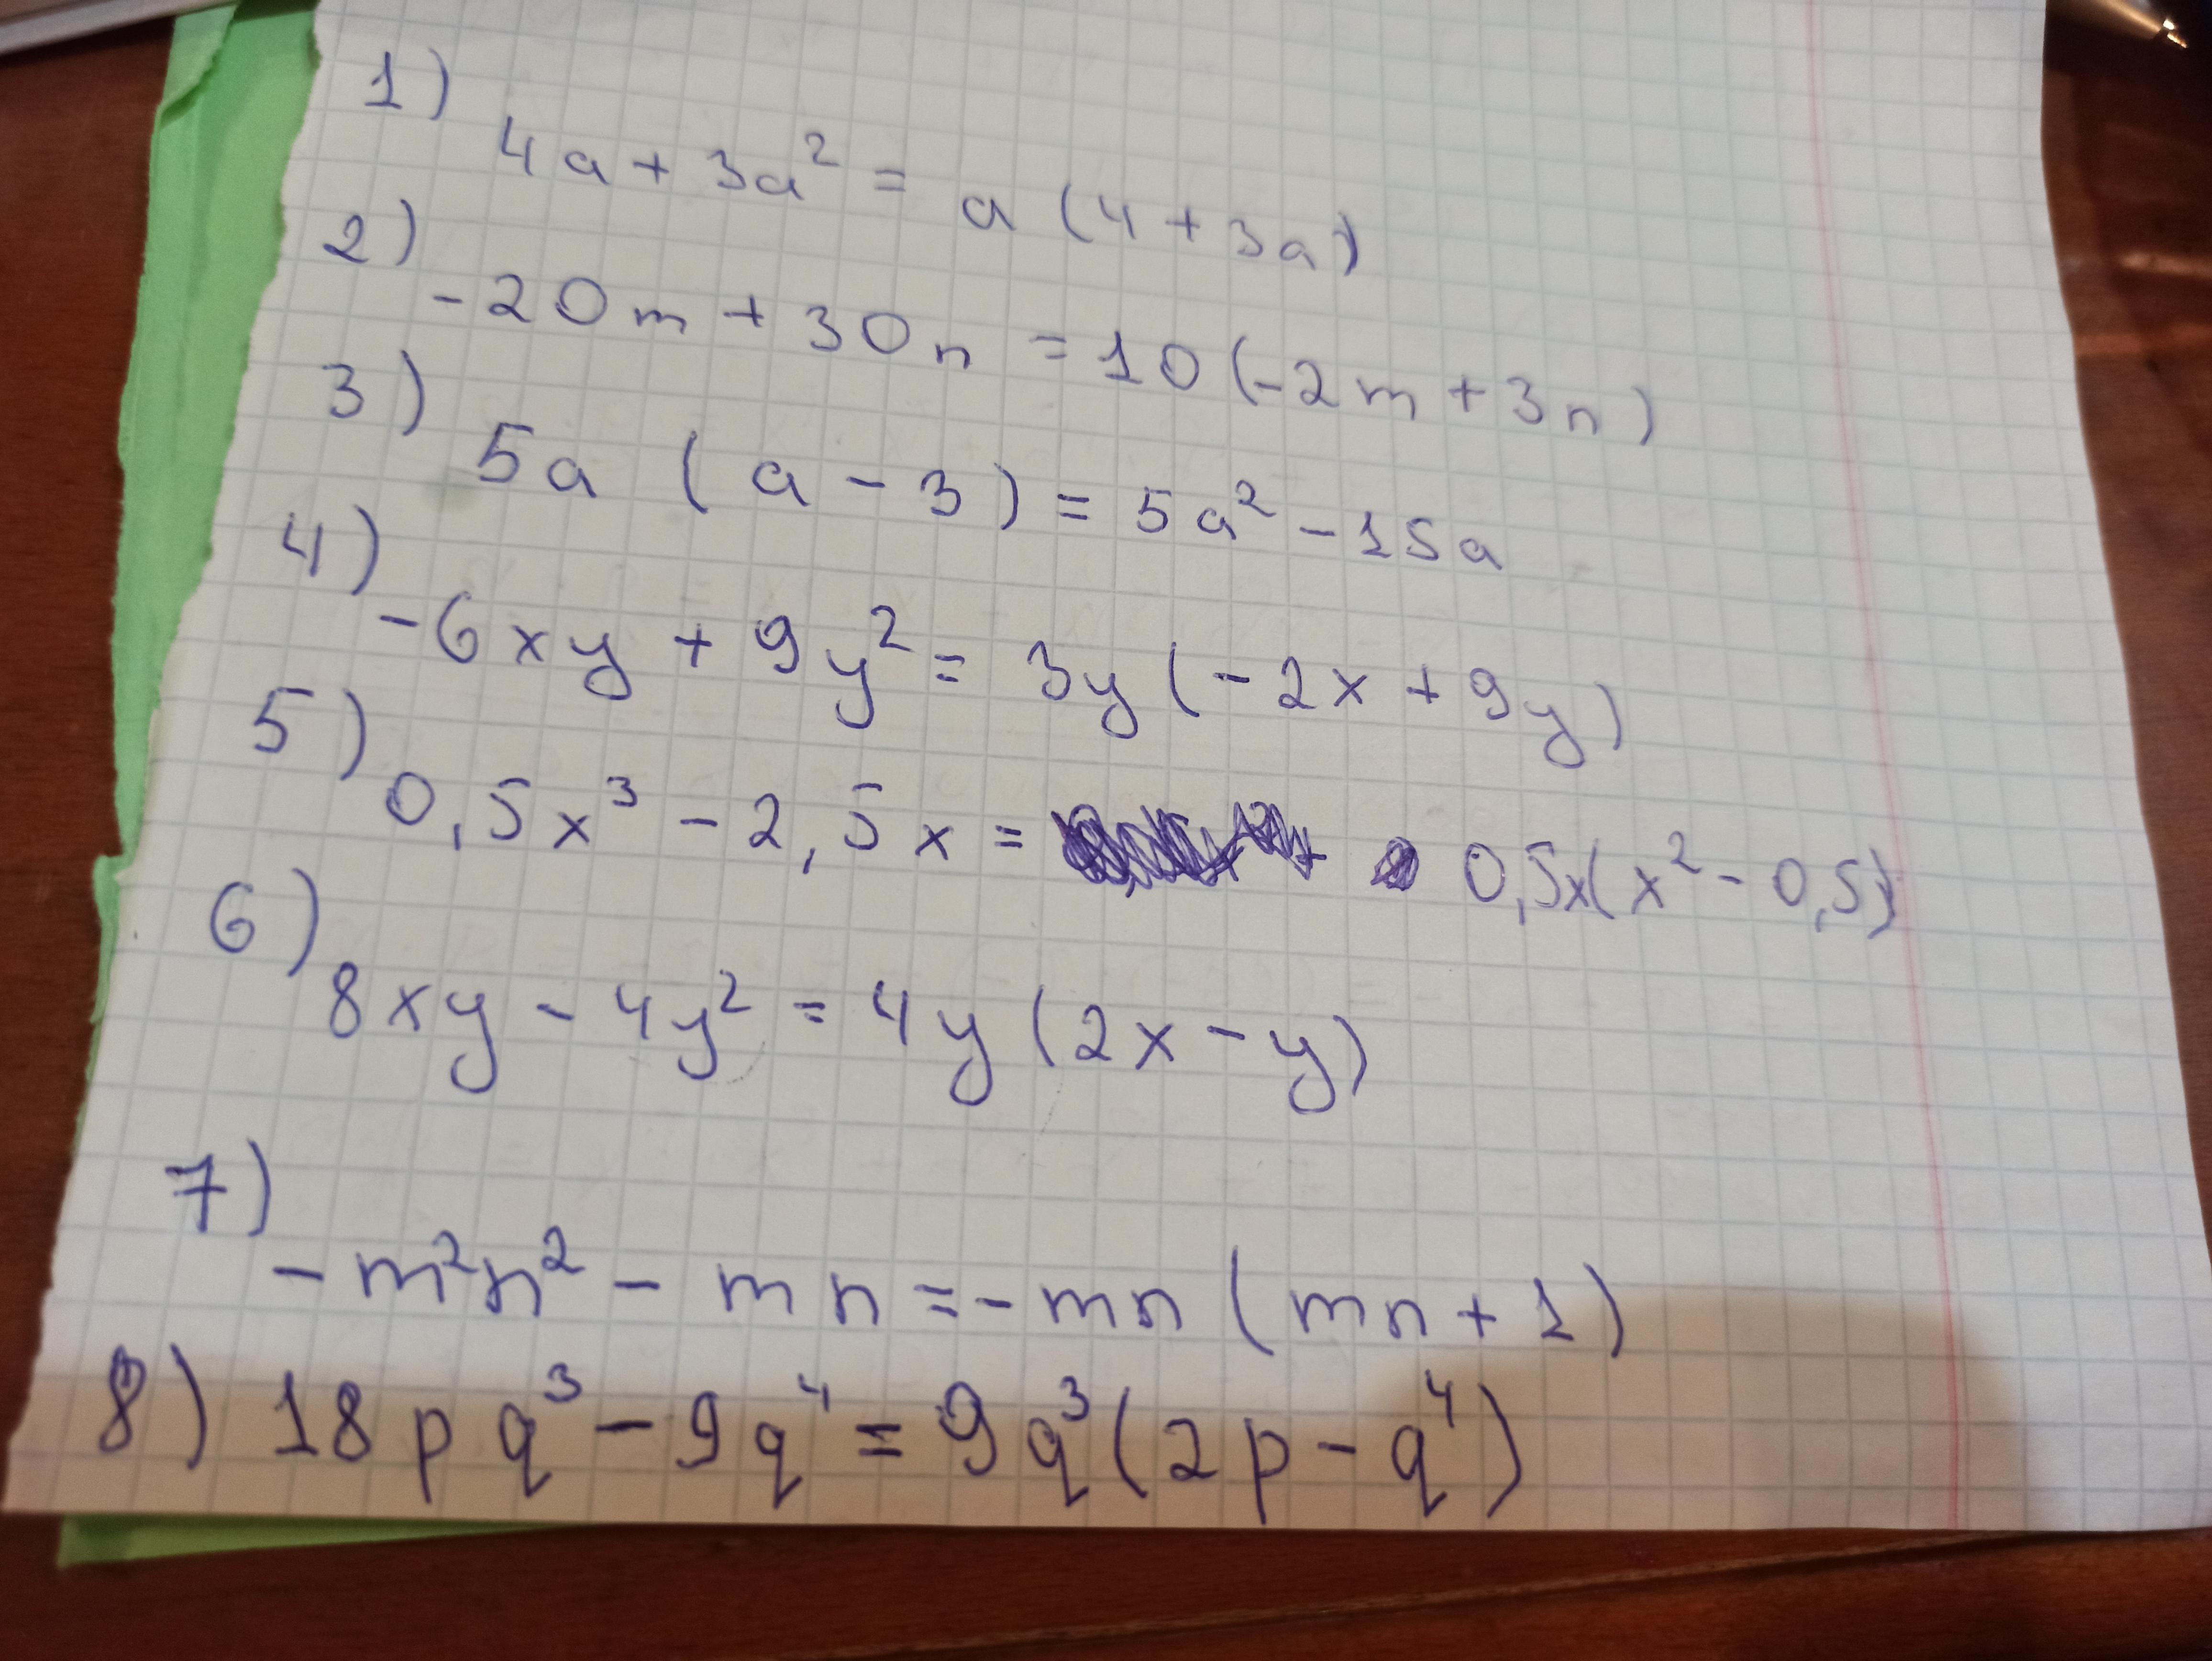 1)
4a + 3a² = a (4 + 3a)
2)
-20m + 30n = 10 (-2m + 3n)
3)
5a (a - 3) = 5a² - 15a
4)
-6xy + 9y² = 3y (-2x + 9y)
5)
0,5x³ - 2,5x = 0,5x(x² - 0,5)
6)
8xy - 4y² = 4y (2x - y)
7)
-m²n² - mn = -mn (mn + 1)
8) 18pq³ - 9q⁴ = 9q³(2p - q⁴)